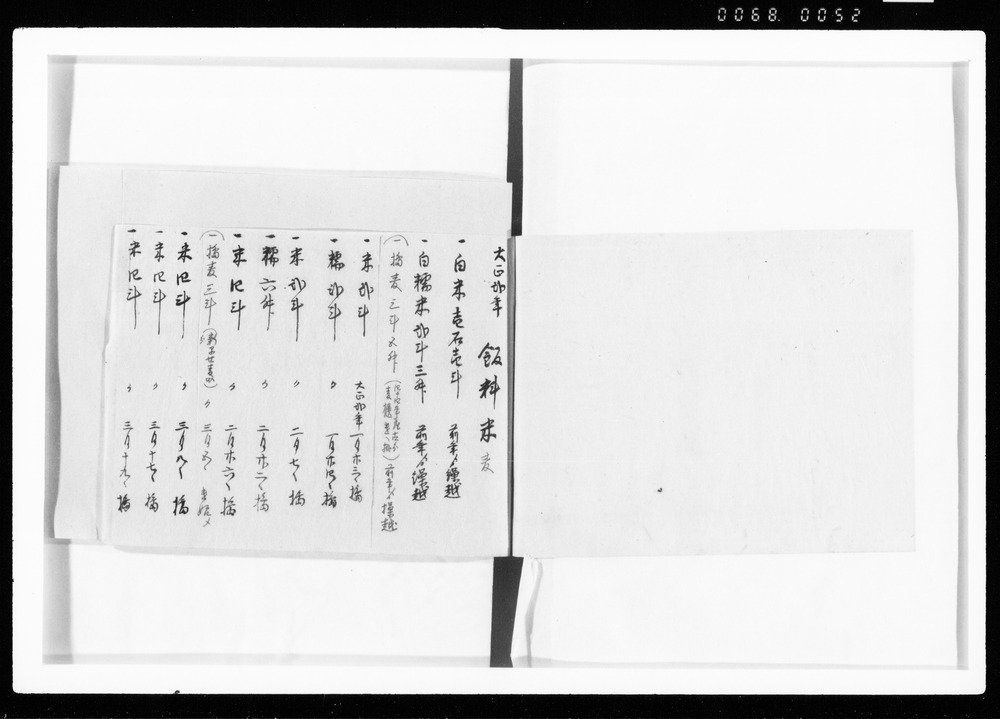 0068. 0052
大正弐年 飯料米 麦
一 白米壱石壱斗 前年〆繰越
一 白糯米弐斗三升 前年〆繰越
一 搗麦三斗五升 前年〆繰越
一 米弐斗 大正弐年一月廿三日搗
一 糯弐斗 〃 一月廿四日搗
一 米弐斗 〃 二月七日搗
一 糯六升 〃 二月廿二日搗
一 米四斗 〃 二月廿六日搗
一 搗麦三斗 〃 三月五日
一 米四斗 〃 三月九日搗
一 米四斗 〃 三月十七日搗
一 米四斗 〃 三月十九日搗